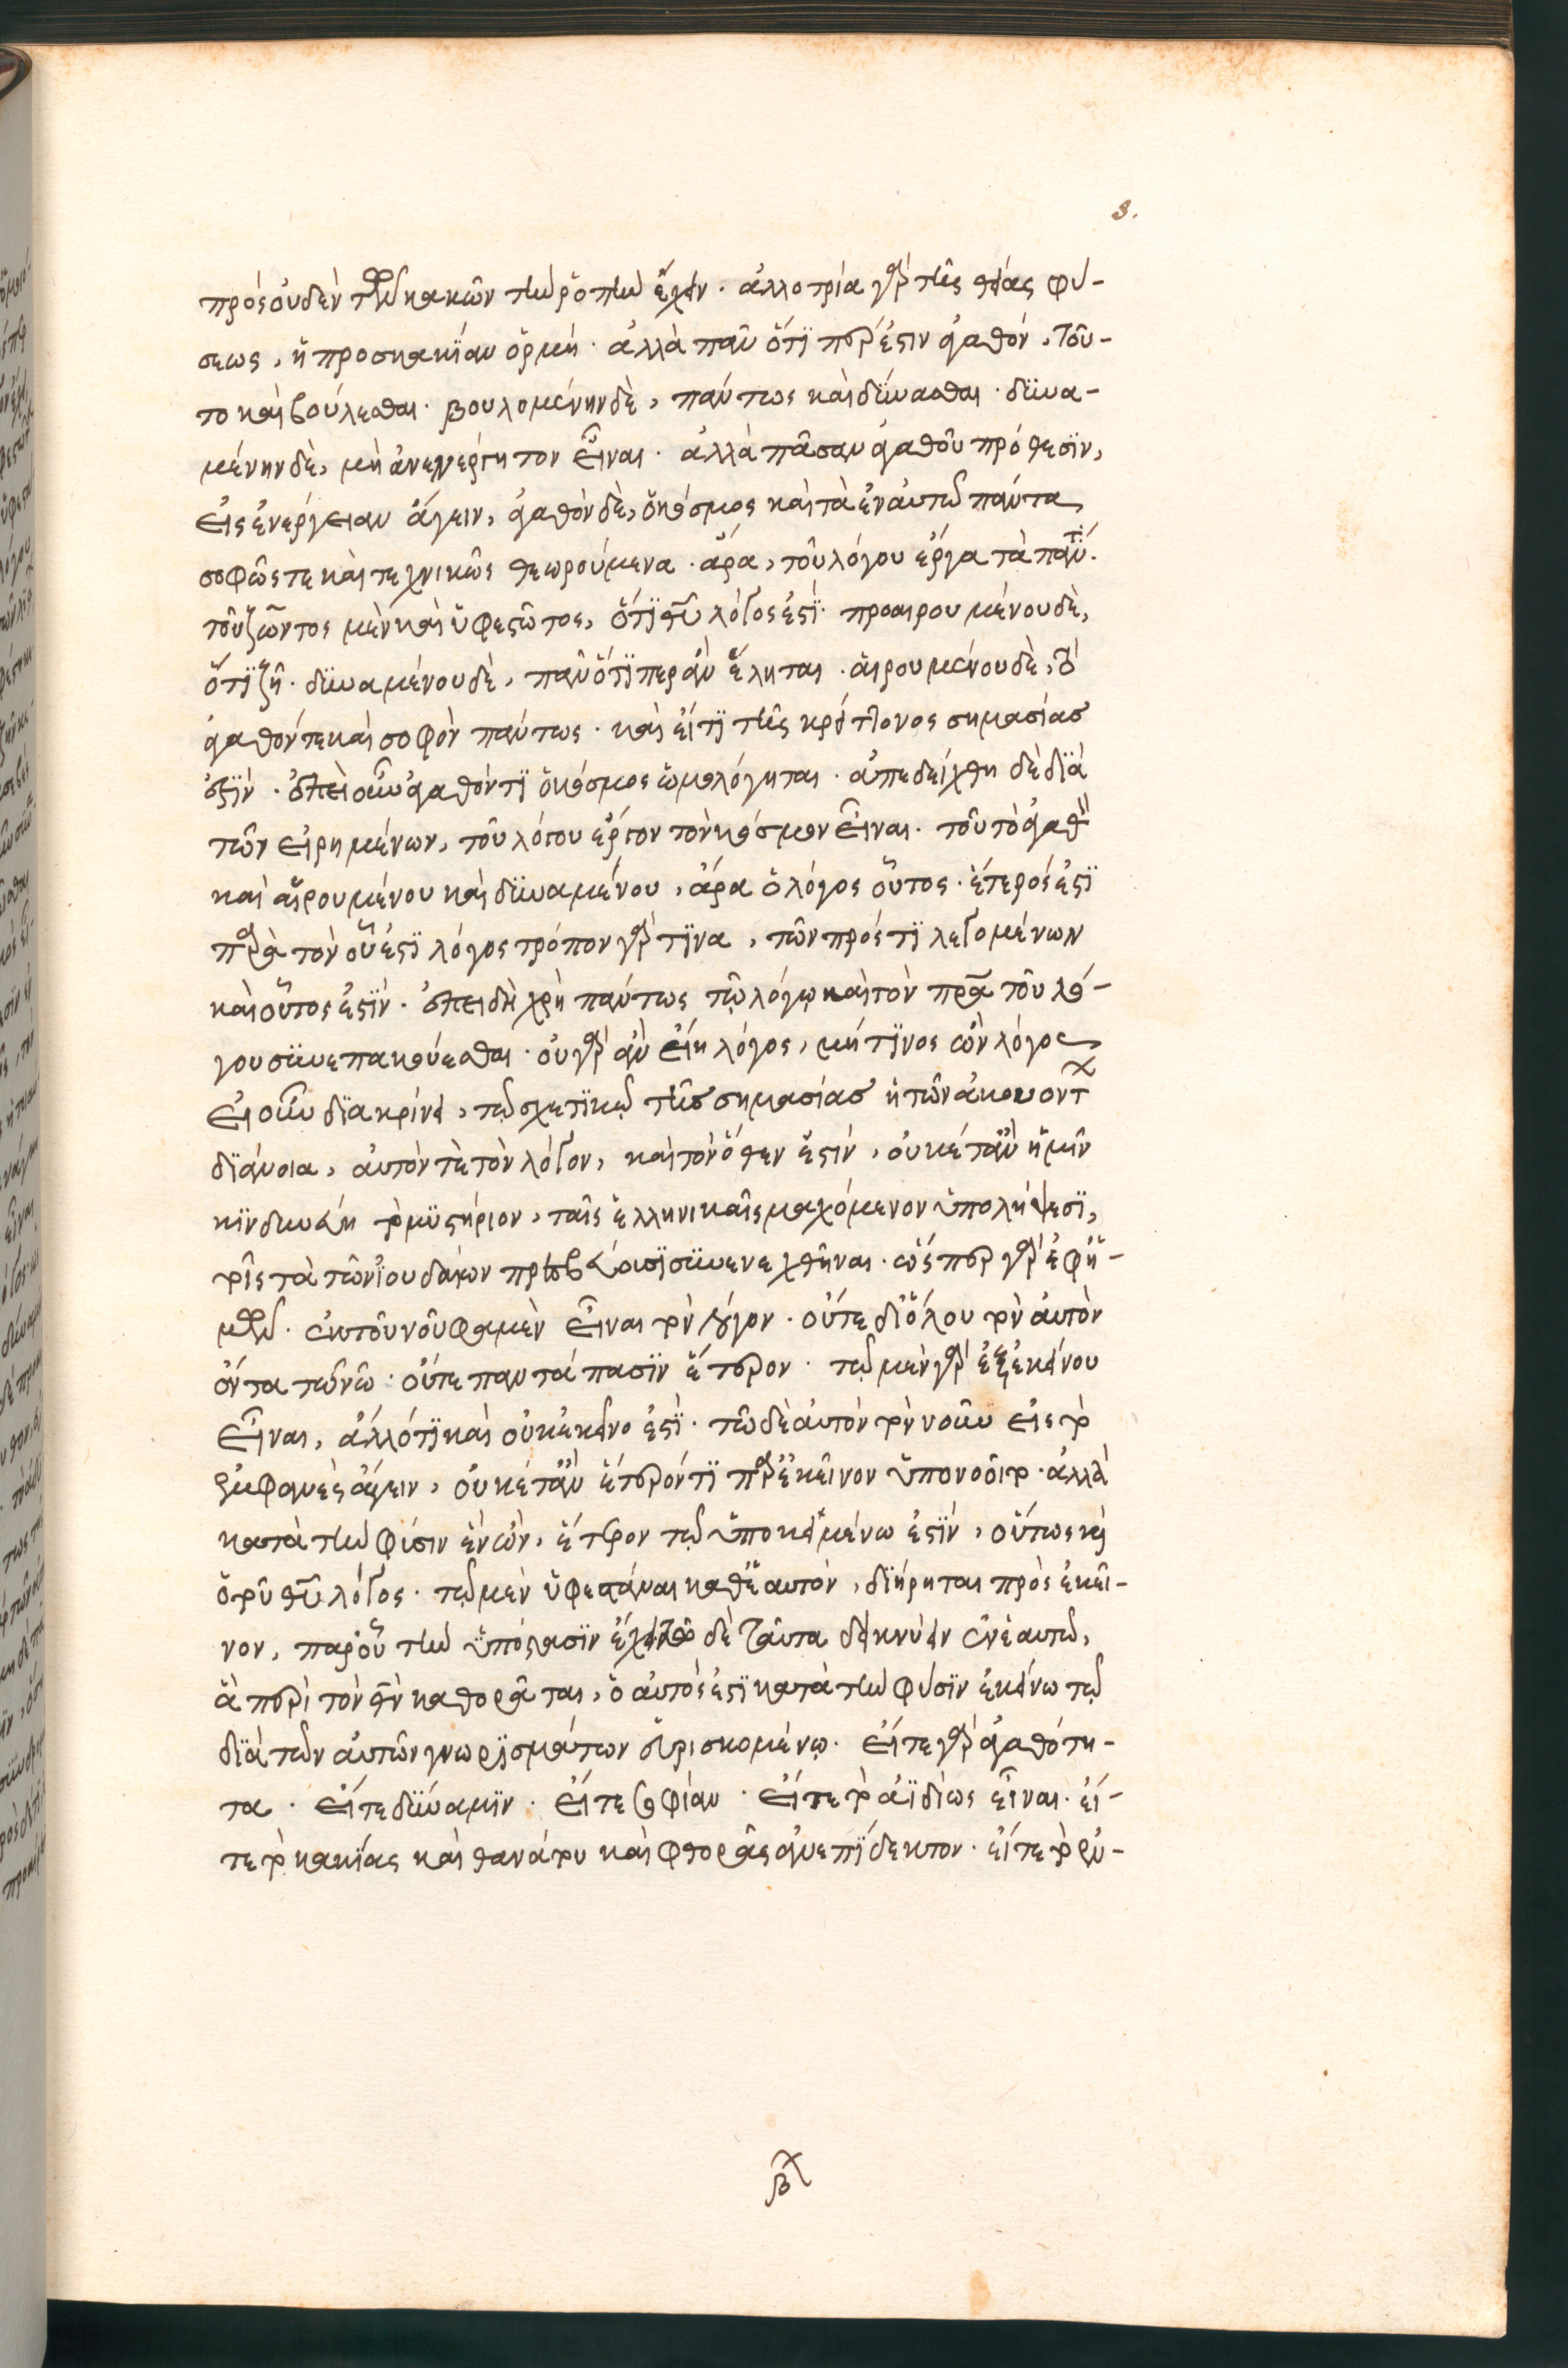 3.
πρὸς οὐδὲν τῶν κακῶν τὴν ῥοπὴν ἔχειν · ἀλλοτρία γὰρ τῆς θείας φύ-
σεως, ἡ πρὸς κακίαν ὁρμή · ἀλλὰ πᾶν ὅτι πέρ ἐστιν ἀγαθόν, τοῦ-
το καὶ βούλεσθαι · βουλομένην δὲ, πάντως καὶ δύνασθαι · δυνα-
μένην δὲ, μὴ ἀνενέργητον εἶναι · ἀλλὰ πᾶσαν ἀγαθοῦ πρόθεσιν,
εἰς ἐνέργειαν ἄγειν, ἀγαθὸν δὲ, ὁ κόσμος καὶ τὰ ἐν αὐτῷ πάντα
σοφῶς τε καὶ τεχνικῶς θεωρούμενα · ἄρα, τοῦ λόγου ἔργα τὰ πάντ.
τοῦ ζῶντος μὲν καὶ ὑφεστῶτος, ὅτι θῦ λόγος ἐστί · προαιρουμένου δὲ,
ὅτι ζῆ · δυναμένου δὲ, πᾶν ὅτι περ ἂν ἕληται · αἱρουμένου δὲ, τὸ
ἀγαθόν τε καὶ σοφὸν πάντως · καὶ εἴ τι τῆς κρείττονος σημασίας
ἐστίν · ἐπεὶ οὖν ἀγαθόν τι ὁ κόσμος ὡμολόγηται · ἀπεδείχθη δὲ διὰ
τῶν εἰρημένων, τοῦ λόγου ἔργον τὸν κόσμον εἶναι · τοῦ τὸ ἀγαθὸν
καὶ αἱρουμένου καὶ δυναμένου, ἄρα ὁ λόγος οὗτος · ἕτερός ἐστι
παρὰ τὸν οὗ ἐστι λόγος τρόπον γὰρ τινα, τῶν πρός τι λεγομένων
καὶ οὗτος ἐστίν · ἐπειδὴ χρὴ πάντως τῷ λόγῳ καὶ τὸν πρα τοῦ λό-
γου συνεπακούεσθαι · οὐ γὰρ ἂν εἴη λόγος, μή τινος ὢν λόγος
εἰ οὖν διακρίνει, τῷ σχετικῷ τῆς σημασίας ἡ τῶν ἀκουόντ
διάνοια, αὐτόν τε τὸν λόγον, καὶ τὸν ὅθεν ἐστίν, οὐκέτ᾽ ἂν ἡμῖν
κινδυνεύη τὸ μυστήριον, ταῖς ἑλληνικαῖς μαχόμενον ὑπολήψεσι,
τοῖς τὰ τῶν ἰουδαίων πρεσβεύουσι συνενεχθῆναι · ὥσπερ γὰρ ἔφη-
μεν · ἐκ τοῦ νοῦ φαμὲν εἶναι τὸν λόγον · οὔτε δι᾽ ὅλου τὸν αὐτὸν
ὄντα τῷ νῷ · οὔτε παντάπασιν ἕτερον · τῷ μὲν γὰρ ἐξ ἐκείνου
εἶναι, ἄλλό τι καὶ οὐκ ἐκεῖνο ἐστί · τῷ δὲ αὐτὸν τὸν νοῦν εἰς τὸ
ἐμφανὲς ἄγειν, οὐκέτ᾽ ἂν ἕτερόν τι παρ᾽ ἐκεῖνον ὑπονοοῖτο · ἀλλὰ
κατὰ τὴν φύσιν ἓν ὢν, ἕτερον τῷ ὑποκειμένω ἐστίν, οὕτως καὶ
ὁ τοῦ θῦ λόγος · τῷ μὲν ὑφεστάναι καθ᾽ ἑαυτὸν, διήρηται πρὸς ἐκεῖ-
νον, παρ᾽ οὗ τὴν ὑπόστασιν ἔχει τῷ δὲ ταῦτα δεικνύειν ἐν ἑαυτῷ,
ἃ περὶ τὸν θν καθορᾶται, ὁ αὐτός ἐστι κατὰ τὴν φύσιν ἐκείνω τῷ
διὰ τῶν αὐτῶν γνωρισμάτων εὑρισκομένῳ · εἴτε γὰρ ἀγαθότη-
τα · εἴτε δύναμιν · εἴτε σοφίαν · εἴτε τὸ ἀϊδίως εἶναι · εἴ-
τε τὸ κακίας καὶ θανάτου καὶ φθορᾶς ἀνεπίδεκτον · εἴτε τὸ ἐν-
β